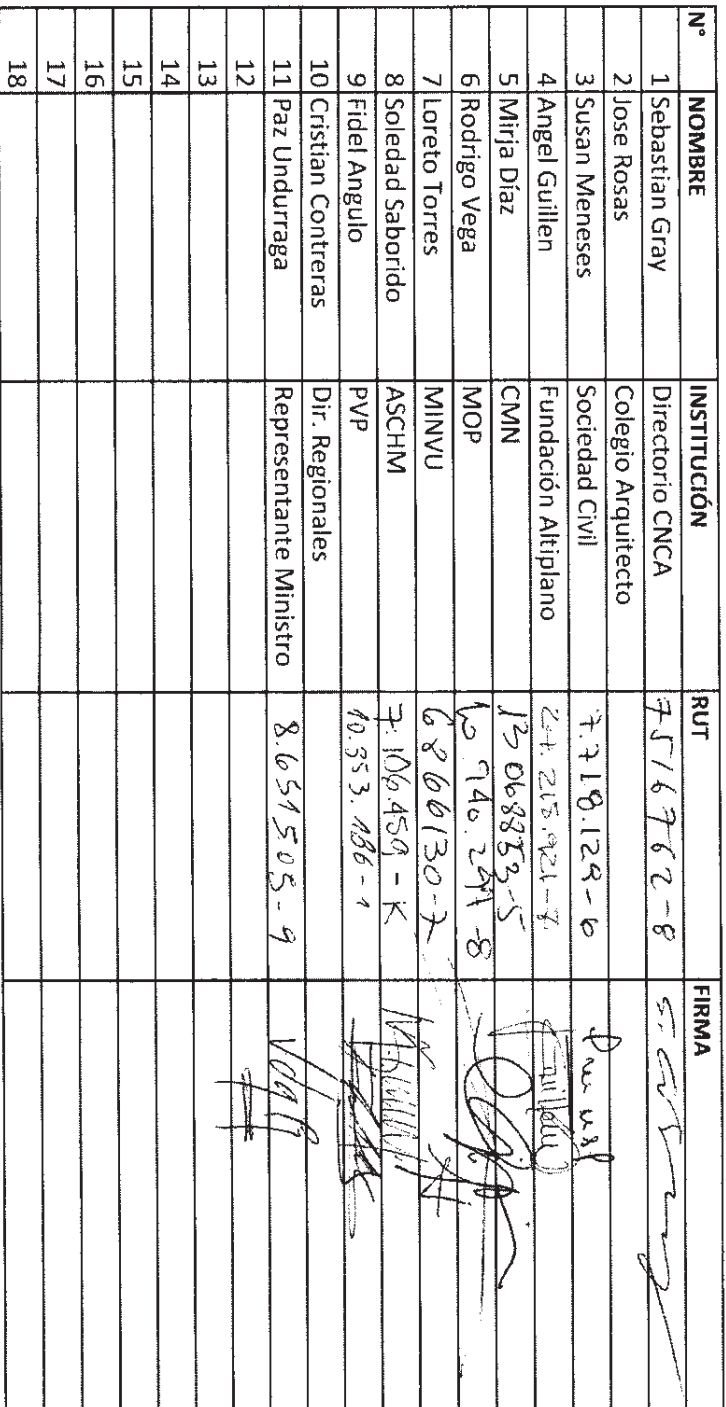 N° NOMBRE INSTITUCIÓN RUT FIRMA
1 Sebastian Gray Directorio CNCA 7516762-8
2 Jose Rosas Colegio Arquitecto
3 Susan Meneses Sociedad Civil 7.718.129-6
4 Angel Guillen Fundación Altiplano
5 Mirja Díaz CMN 13068853-5
6 Rodrigo Vega MOP
7 Loreto Torres MINVU 6866130-7
8 Soledad Saborido ASCHM 7.106.459-K
9 Fidel Angulo PVP 10.353.186-1
10 Cristian Contreras Dir. Regionales
11 Paz Undurraga Representante Ministro 8.651505-9
12
13
14
15
16
17
18